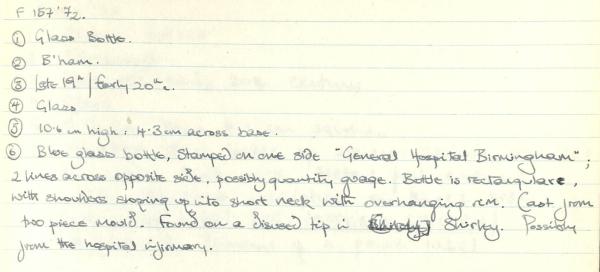 F 157'72.
① Glass Bottle.
② B'ham.
③ Late 19th / Early 20th c.
④ Glass
⑤ 10.6 cm high : 4.3 cm across base.
⑥ Blue glass bottle, stamped on one side "General Hospital Birmingham";
2 lines across opposite side, possibly quantity guage. Bottle is rectangulare,
with shoulders sloping up into short neck with overhanging rim. Cast from
two piece mould. Found on a disused tip in Shirley. Possibly
from the hospital infirmary.